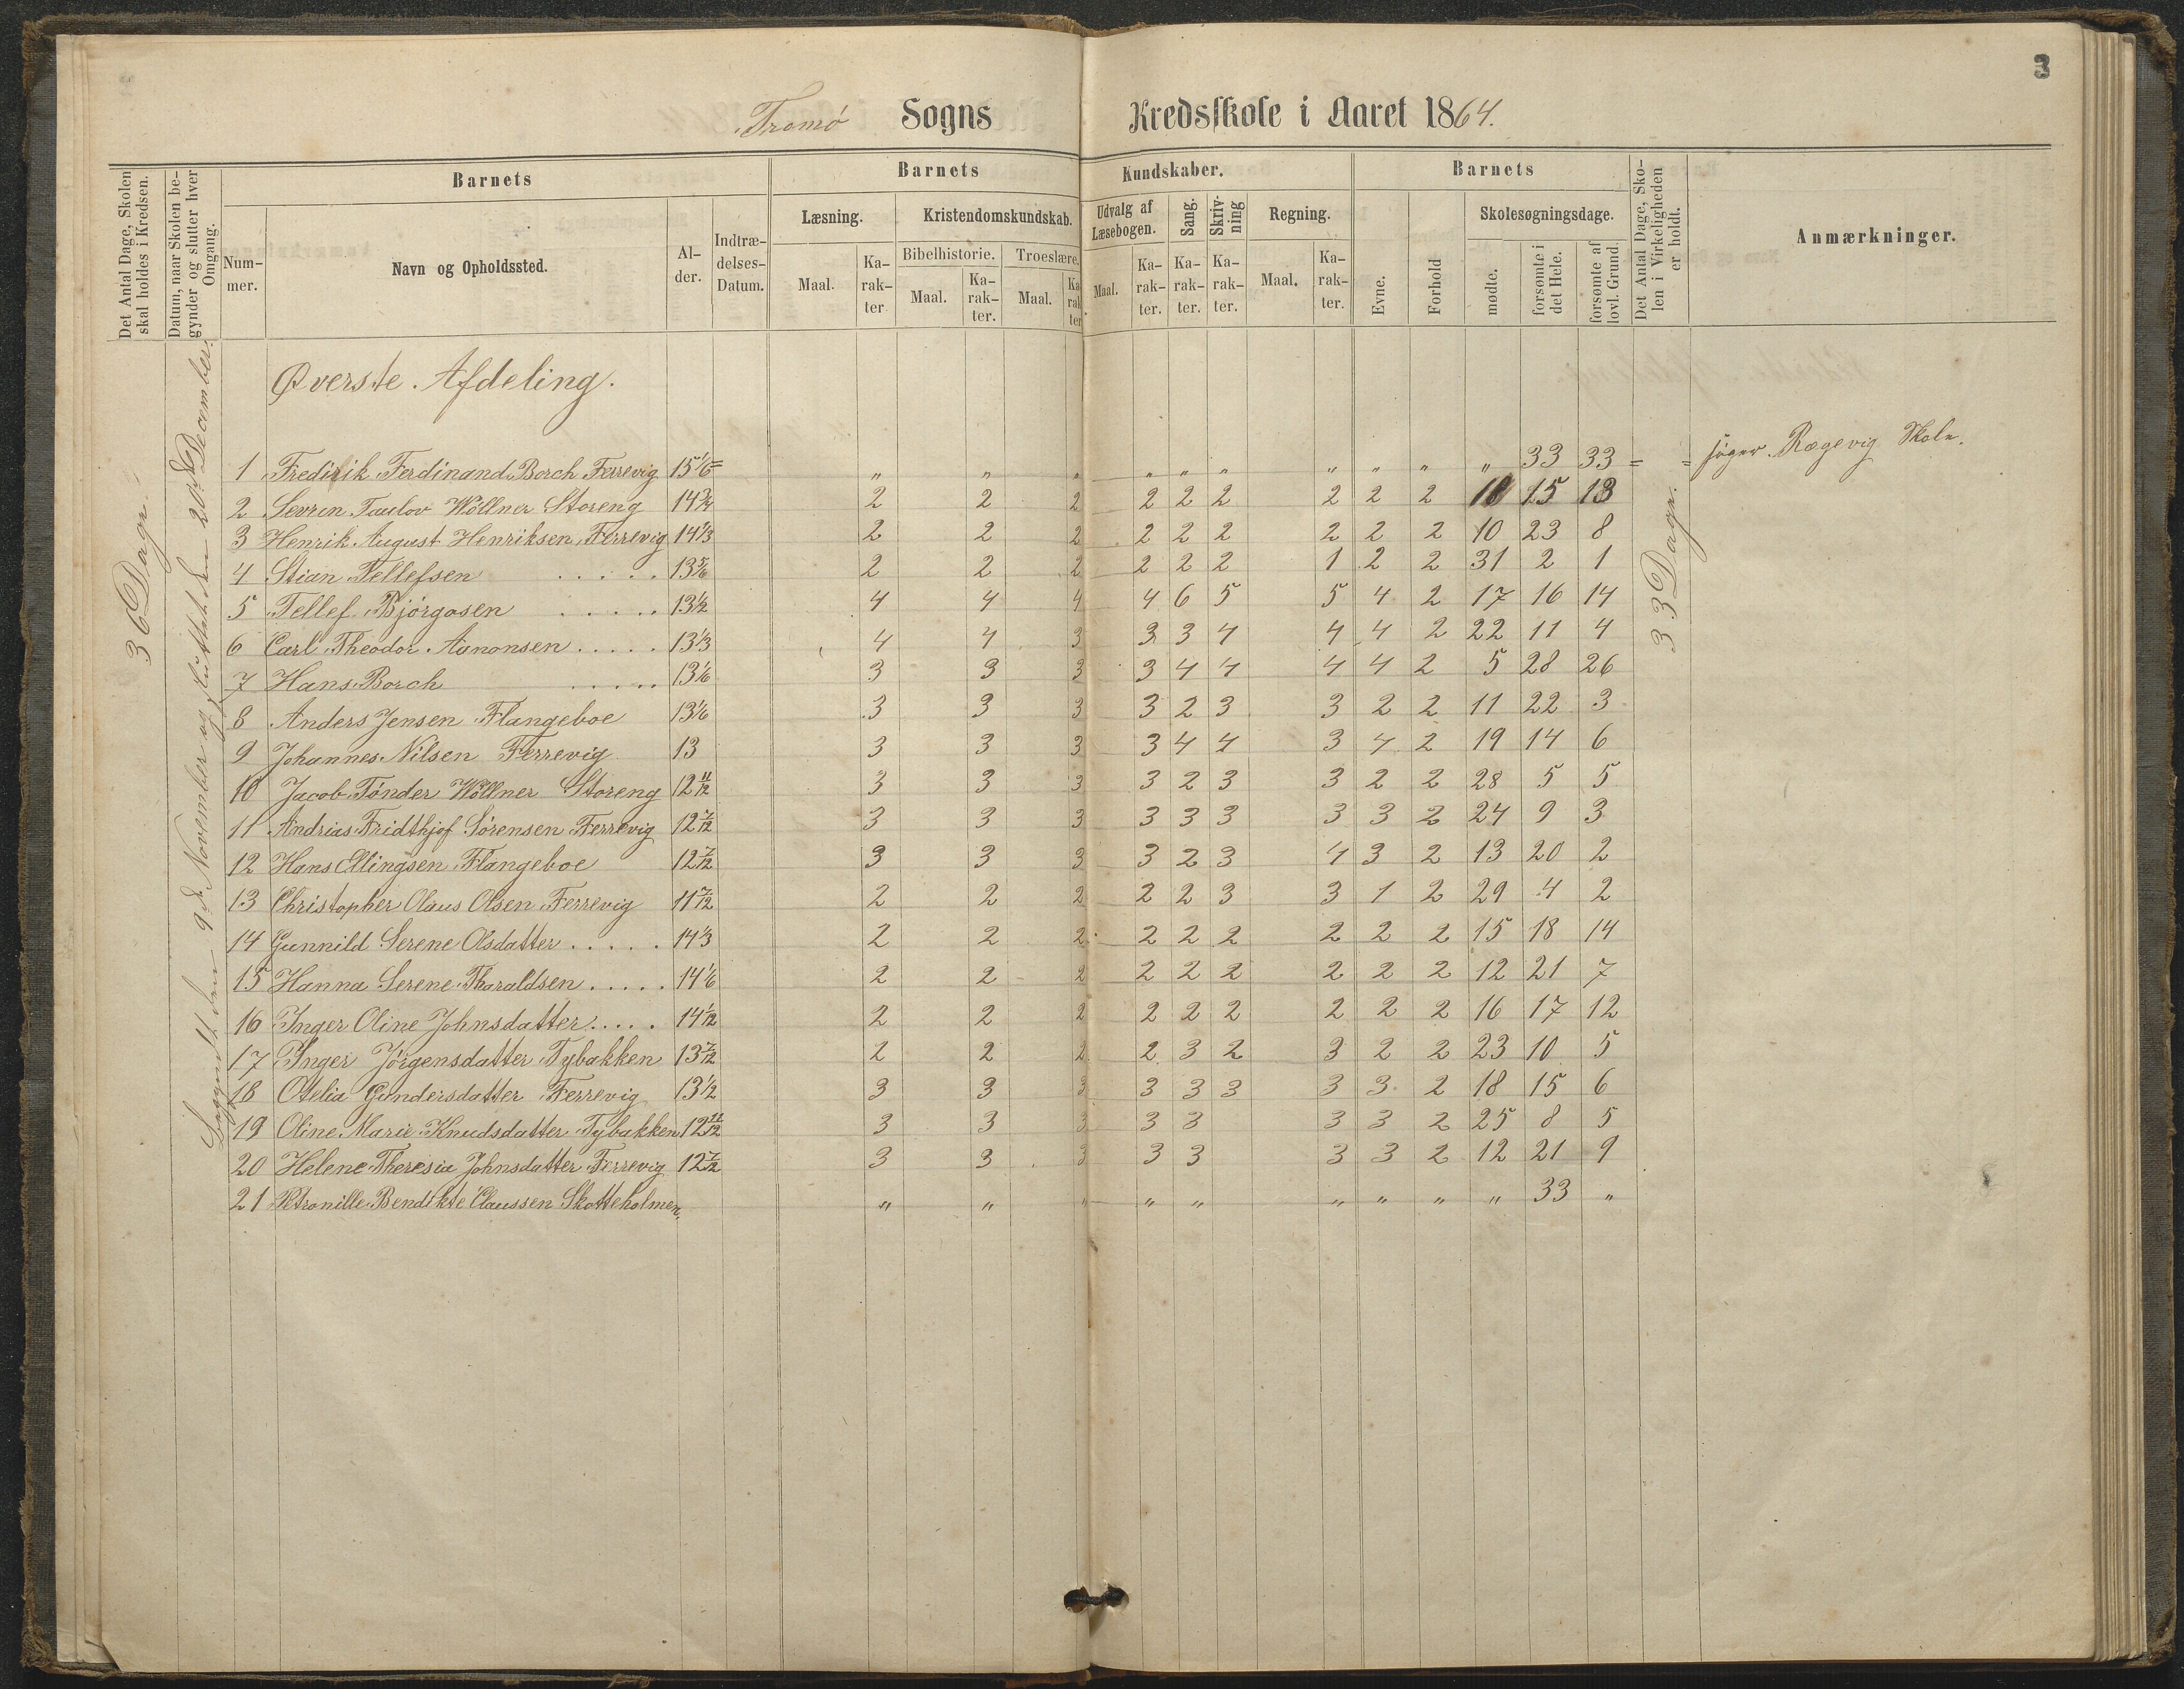 3
Tromö Sogns Kredsskole i Aaret 1864.
Det Antal Dage, Skolen skal holdes i Kredsen.
Datum, naar Skolen begynder og slutter hver Omgang.
Barnets
Barnets
Kundskaber.
Barnets
Det Antal Dage, Skolen i Virkeligheden er holdt.
Anmærkninger.
Nummer.
Navn og Opholdssted.
Alder.
Indtrædelses-Datum.
Læsning.
Kristendomskundskab.
Udvalg af Læsebogen.
Sang.
Skrivning
Regning.
Evne.
Forhold
Skolesøgningsdage.
Bibelhistorie.
Troeslære.
Maal.
Karakter
Maal.
Karakter.
Maal.
Karakter
Maal.
Karakter.
Karakter.
Karakter.
Maal.
Karakter.
mødte.
forsømte i det Hele.
forsømte af lovl. Grund.
Øverste Afdeling.
36 Dage.
Begyndt den 9de November og sluttet den 20de December.
33 Dage.
1 Fredirik Ferdinand Borch Færrevig 15 1/6 = " " " " " " " " " " 33 33 = = søger Rægevig Skole.
2 Sevren Taulov Wöllner Storeng 14 3/4 2 2 2 2 2 2 2 2 2 18 15 13
3 Henrik August Henriksen Ferrevig 14 1/3 2 2 2 2 2 2 2 2 2 10 23 8
4 Stian Tellefsen . . . . . 13 5/6 2 2 2 2 2 2 1 2 2 31 2 1
5 Tellef Bjørgosen . . . . . 13 1/2 4 4 4 4 6 5 5 4 2 17 16 14
6 Carl Theodor Aanonsen . . . . . 13 1/3 4 4 3 3 3 4 4 4 2 22 11 4
7 Hans Borch . . . . . 13 1/6 3 3 3 3 4 4 4 4 2 5 28 26
8 Anders Jensen Flangeboe 13 1/6 3 3 3 3 2 3 3 2 2 11 22 3
9 Johannes Nilsen Ferrevig 13 3 3 3 3 4 4 3 4 2 19 14 6
10 Jacob Tönder Wöllner Storeng 12 11/12 3 3 3 3 2 3 3 2 2 28 5 5
11 Andrias Fridthjof Sörensen Ferrevig 12 7/12 3 3 3 3 3 3 3 3 2 24 9 3
12 Hans Ellingsen Flangeboe 12 7/12 3 3 3 3 2 3 4 3 2 13 20 2
13 Christopher Olaus Olsen Ferrevig 11 7/12 2 2 2 2 2 3 3 1 2 29 4 2
14 Gunnild Serene Olsdatter . . . . . 14 1/3 2 2 2 2 2 2 2 2 2 15 18 14
15 Hanna Serene Tharaldsen . . . . . 14 1/6 2 2 2 2 2 2 2 2 2 12 21 7
16 Inger Oline Johnsdatter . . . . 14 1/12 2 2 2 2 2 2 2 2 2 16 17 12
17 Inger Jörgensdatter Tybakken 13 7/12 2 2 2 2 3 2 3 2 2 23 10 5
18 Otelia Gundersdatter Ferrevig 13 1/2 3 3 3 3 3 3 3 3 2 18 15 6
19 Oline Marie Knudsdatter Tybakken 12 11/12 3 3 3 3 3 3 3 2 25 8 5
20 Helene Theresia Johnsdatter Ferrevig 12 7/12 3 3 3 3 3 3 3 2 12 21 9
21 Petronille Bendikte Claussen Skotteholmen. " " " " " " " " " 33 "